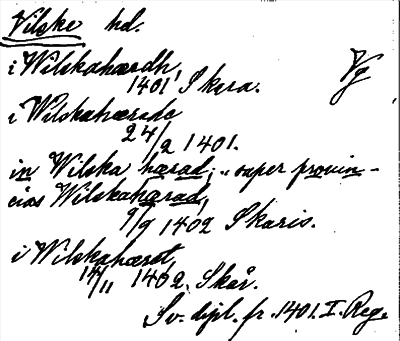 Vilske hd.
i Wilskahærdh,
1401, Skara. Vg
i Wilskahærade
24/2 1401.
in Wilska hærad; "super provin-
cias Wilskahærad,
9/9 1402 Skaris.
i Wilskahæret,
14/11 1402. Skår.
Sv. dipl. fr. 1401. I. Reg.